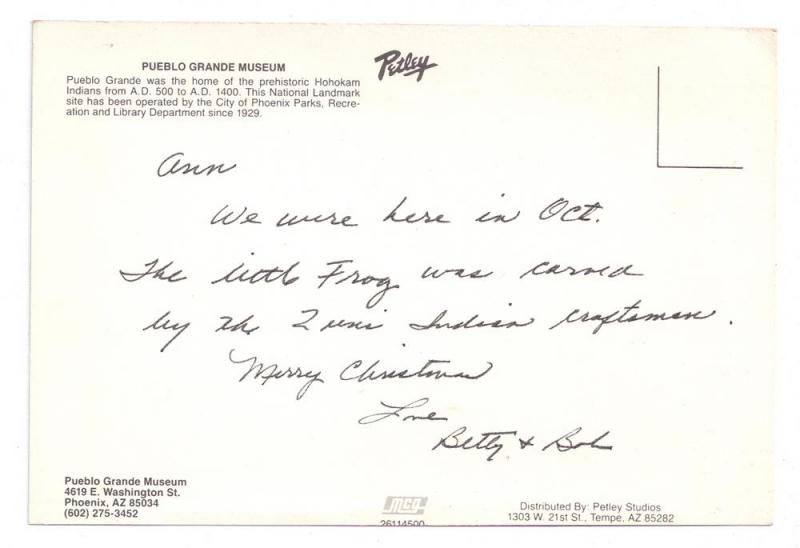 PUEBLO GRANDE MUSEUM
Pueblo Grande was the home of the prehistoric Hohokam
Indians from A.D. 500 to A.D. 1400. This National Landmark
site has been operated by the City of Phoenix Parks, Recre-
ation and Library Department since 1929.
Petley
Ann
We were here in Oct.
The little Frog was carved
by the Zuni Indian craftsman.
Merry Christmas
Love
Betty & Bob
Pueblo Grande Museum
4619 E. Washington St.
Phoenix, AZ 85034
(602) 275-3452
mcg
26114500
Distributed By: Petley Studios
1303 W. 21st St., Tempe, AZ 85282